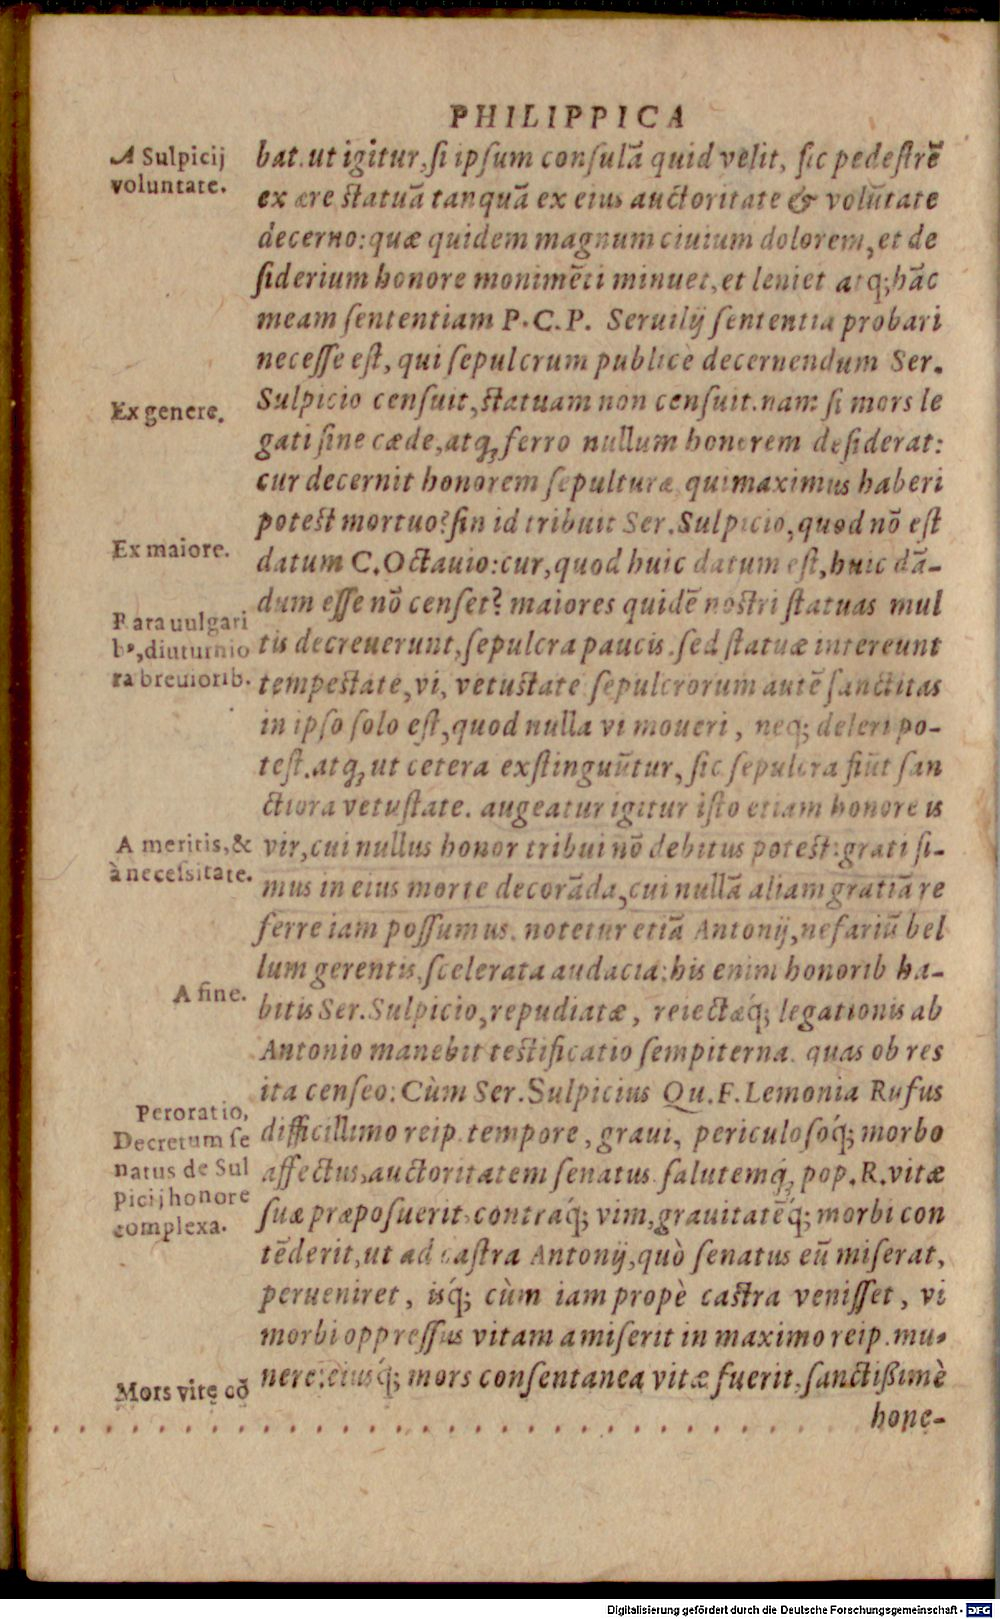 PHILIPPICA
A Sulpicij
voluntate.
bat. ut igitur, si ipsum consulã quid velit, sic pedestrẽ
ex ære statuã tanquã ex eius auctoritate & volũtate
decerno: quæ quidem magnum ciuium dolorem, et de
siderium honore monimẽti minuet, et leniet atq; hãc
meam sententiam P. C. P. Seruilij sententia probari
necesse est, qui sepulcrum publicè decernendum Ser.
Ex genere.
Sulpicio censuit, statuam non censuit. nam si mors le
gati sine cæde, atq; ferro nullum honorem desiderat:
cur decernit honorem sepulturæ, qui maximus haberi
potest mortuo? sin id tribuit Ser. Sulpicio, quod nõ est
Ex maiore.
datum C. Octauio: cur, quod huic datum est, huic dã-
dum esse nõ censet? maiores quidẽ nostri statuas mul
Rara uulgari
b⁹, diuturnio
ra breuiorib.
tis decreuerunt, sepulcra paucis. sed statuæ intereunt
tempestate, vi, vetustate: sepulcrorum autẽ sanctitas
in ipso solo est, quod nulla vi moueri, neq; deleri po-
test. atq; ut cetera exstinguũtur, sic sepulcra fiũt san
ctiora vetustate. augeatur igitur isto etiam honore is
A meritis, &
à necessitate.
vir, cui nullus honor tribui nõ debitus potest: grati si-
mus in eius morte decorãda, cui nullã aliam gratiã re
ferre iam possumus. notetur etiã Antonij, nefariũ bel
lum gerentis, scelerata audacia: his enim honorib ha-
A fine.
bitis Ser. Sulpicio, repudiatæ, reiectæq́; legationis ab
Antonio manebit testificatio sempiterna. quas ob res
ita censeo: Cùm Ser. Sulpicius Qu. F. Lemonia Rufus
Peroratio,
Decretum se
natus de Sul
picij honore
complexa.
difficillimo reip. tempore, graui, periculosóq́; morbo
affectus, auctoritatem senatus, salutemq́; pop. R. vitæ
suæ præposuerit, contraq́; vim, grauitatẽq́; morbi con
tẽderit, ut ad castra Antonij, quò senatus eũ miserat,
perueniret, isq́; cùm iam propè castra venisset, vi
morbi oppressus vitam amiserit in maximo reip. mu-
Mors vitę cõ
nere: eiusq́; mors consentanea vitæ fuerit, sanctißimè
hone-
Digitalisierung gefördert durch die Deutsche Forschungsgemeinschaft - DFG